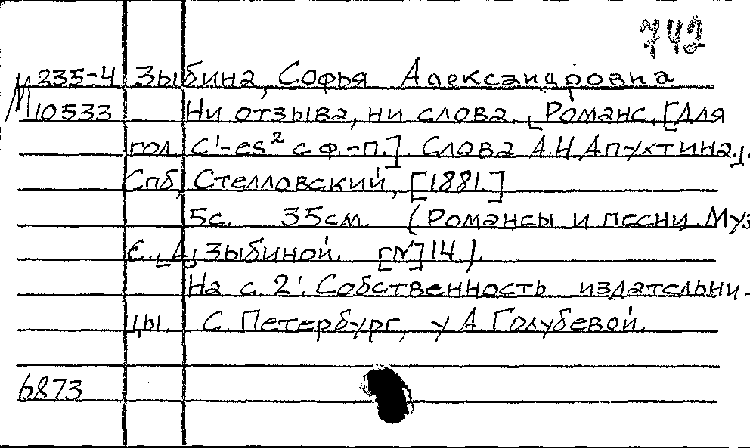 742
М 235-4 Зыбина, Софья Александровна
10533 Ни отзыва, ни слова. Романс. [Для
гол. c¹-es² с ф.-п.]. Слова А.Н. Апухтина.
Спб, Стелловский, [1881.]
5с. 35см. (Романсы и песни. Муз
С. [А] Зыбиной. [№] 14).
На с. 2: Собственность издательни-
цы. С. Петербург, у А. Голубевой.
6873